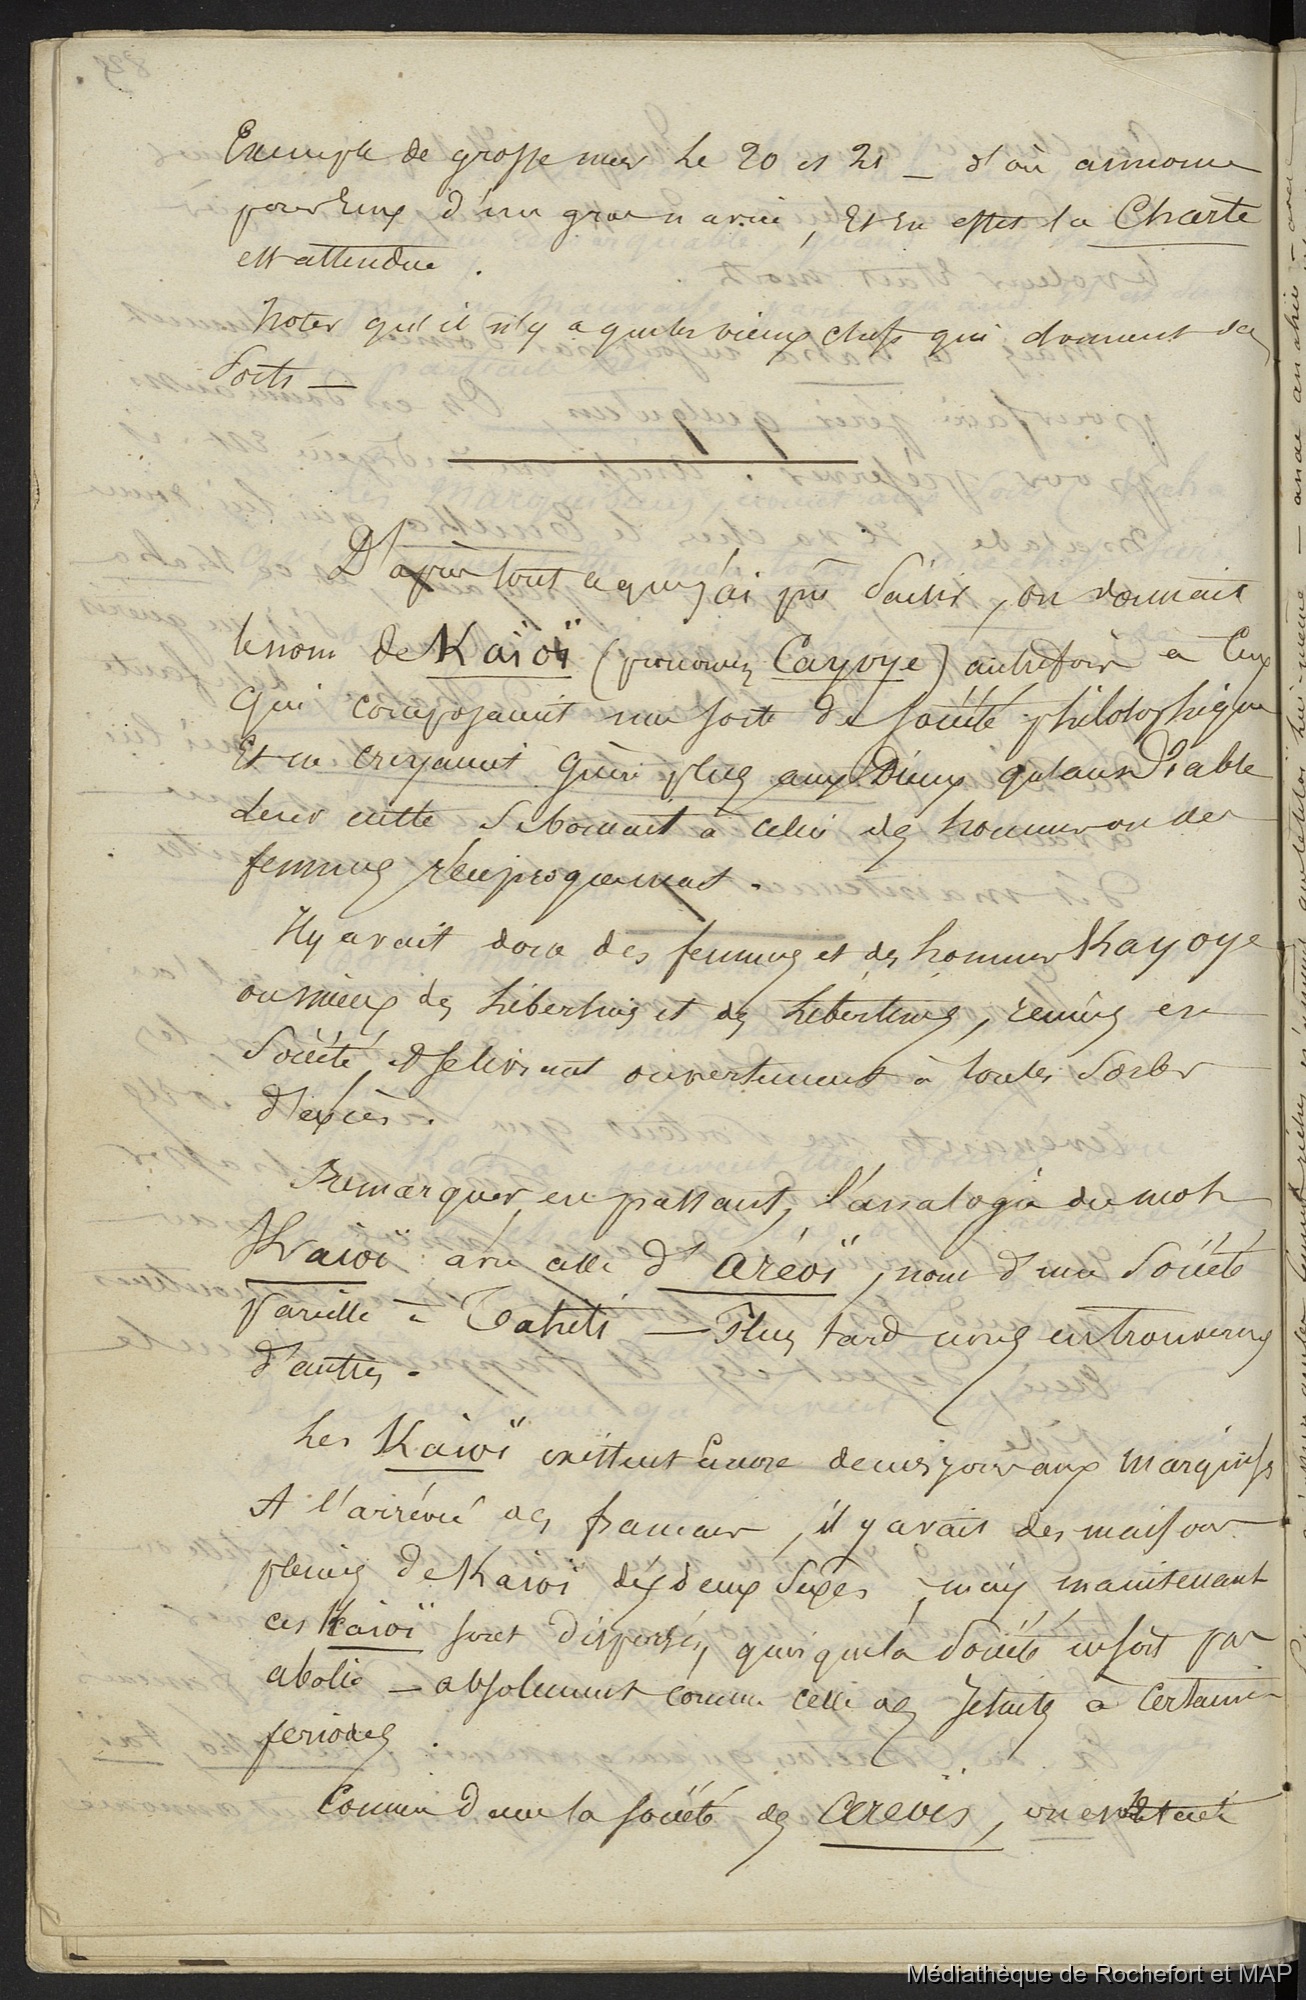 Exemple de grosse mer le 20 et 21 — d'où annonce
pour Eux d'un gros navire, Et En effet la Charte
est attendue.
Noter qu'il n'y a que les vieux chefs qui donnent des
Sorts —
D'après tout ce que j'ai pu Saisir, on donnait
le nom de Kaïoï (prononcez Cayoye) autrefois à Ceux
qui composaient une sorte de société philosophique
Et ne croyaient guère plus aux Dieux qu'au Diable
Leur culte se bornait à celui des hommes ou des
femmes réciproquement.
Il y avait donc des femmes et des hommes Kayoye
ou mieux des libertins et des libertines, réunis en
Société, et se livrant ouvertement à toutes Sortes
d'excès.
Remarquer, en passant, l'analogie du mot
Kaioï avec celle d'aréoï, nom d'une Société
pareille à Tahiti — Plus tard nous en trouverons
d'autres.
Les Kaioï existent Encore de nos jours aux marquises
A l'arrivée des francais, il y avait des maisons
pleines de Kaioi des deux Sexes, mais maintenant
ces Kaioï sont dispersés, quoique la Société ne soit pas
abolie — absolument comme celle des Jésuites à Certaines
periodes.
Comme dans la société des Areoïs, on